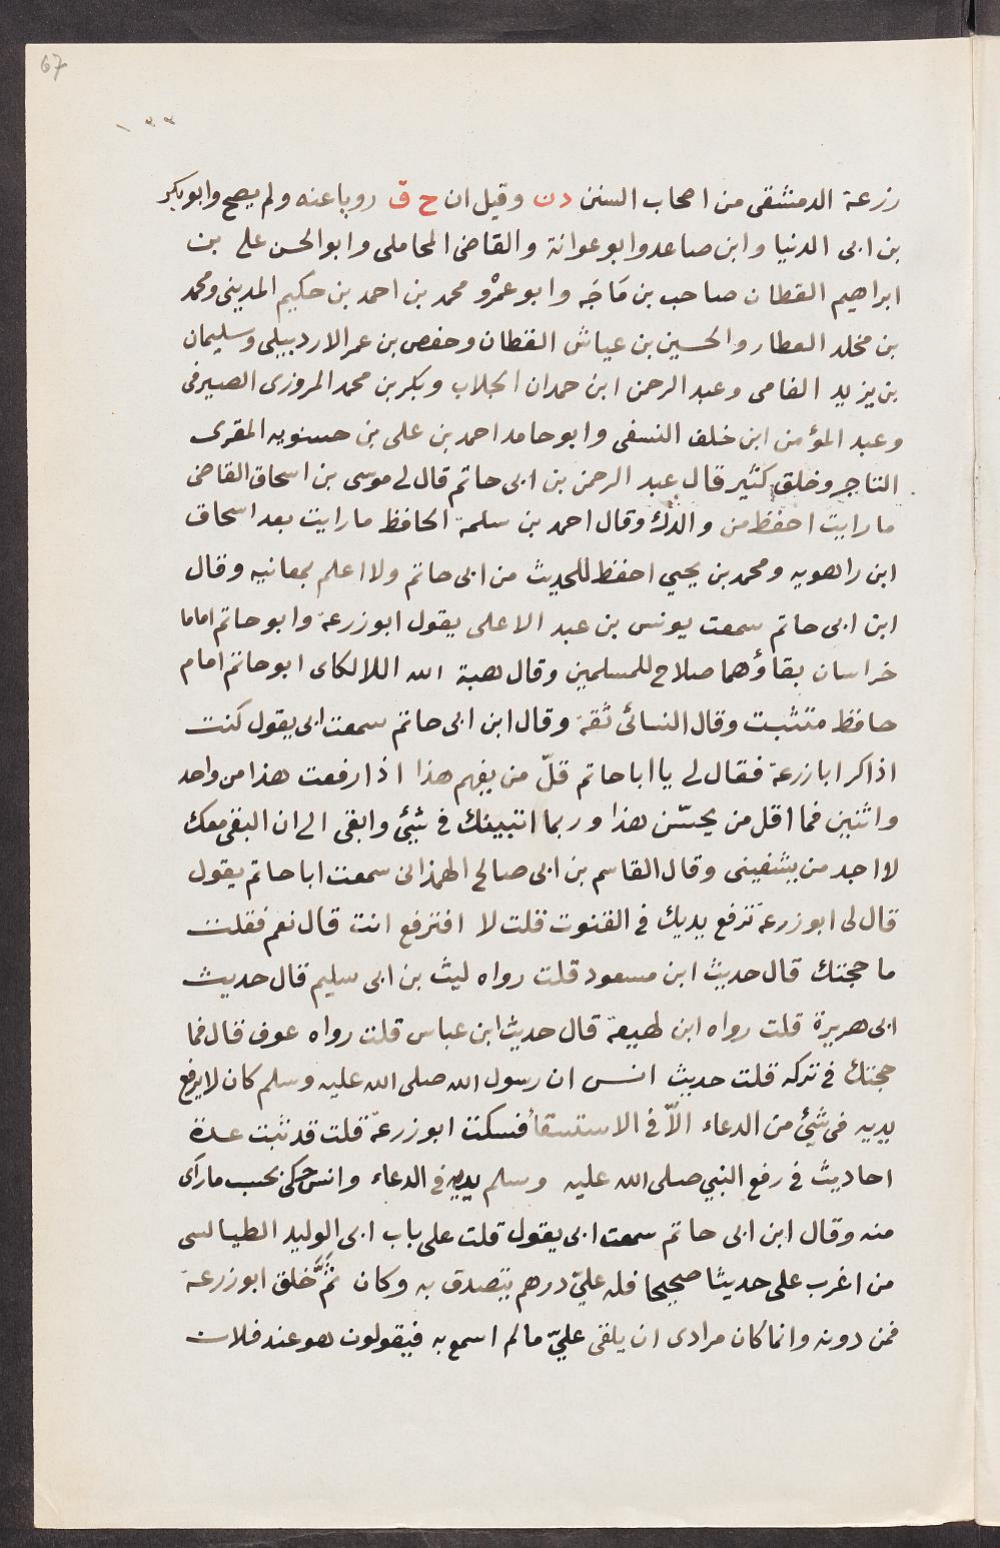 67
١٣٣
زرعة الدمشقى من اصحاب السنن د ن وقيل ان خ ق رويا عنه ولم يصح وابو بكر
بن ابى الدنيا وابن صاعد وابو عوانة والقاضى المحاملى وابو الحسن على بن
ابراهيم القطان صاحب بن مَاجَه وابو عمرْو محمد بن احمد بن حكيم المدينى ومحمد
بن مخلد العطار والحسين بن عياش القطان وحفص بن عمر الاردبيلى وسليمان
بن يزيد الفامى وعبد الرحمن ابن حمدان الجلاب وبكر بن محمد المروزى الصيرفى
وعبد المؤمن ابن خلف النسفى وابو حامد احمد بن على بن حسنويه المقرى
التاجر وخلق كثير قال عبد الرحمن بن ابى حاتم قال لى موسى بن اسحاق القاضى
ما رايت احفظ من والدك وقال احمد بن سلمة الحافظ ما رايت بعد اسحاق
ابن راهويه ومحمد بن يحيي احفظ للحديث من ابى حاتم ولا اعلم بمعانيه وقال
ابن ابى حاتم سمعت يونس بن عبد الاعلى يقول ابو زرعة وابو حاتم اماما
خراسان بقاؤهما صلاح للمسلمين وقال هبة الله اللالكاى ابو حاتم امام
حافظ متثبت وقال النسائى ثقة وقال ابن ابى حاتم سمعت ابى يقول كنت
اذاكر ابا زرعة فقال لى يا ابا حاتم قلّ من يفهم هذا اذا رفعت هذا من واحد
واثنين فما اقل من يحسّن هذا وربما اتبيئك في شيئ وابقى الى ان البقى معك
لا اجد من يشفينى وقال القاسم بن ابى صالح الهمذانى سمعت ابا حاتم يقول
قال لى ابو زرعة ترفع يديك في القنوت قلت لا افترفع انت قال نعم فقلت
ما حجتك قال حديث ابن مسعود قلت رواه ليث بن ابى سليم قال حديث
ابى هريرة قلت رواه ابن لهيعة قال حديث ابن عباس قلت رواه عوف قال فما
حجتك في تركه قلت حديث انس ان رسول الله صلى الله عليه وسلم كان لا يرفع
يديه فى شيئ من الدعاء الاّ في الاستسقأ فسكت ابو زرعة قلت قد ثبت عدة
احاديث في رفع النبي صلى الله عليه وسلم يديه في الدعاء وانس حكى بحسب ما رأى
منه وقال ابن ابى حاتم سمعت ابى يقول قلت على باب ابى الوليد الطيالسى
من اغرب على حديثا صحيحا فله علىّ درهم يتصدق به وكان ثَمَّ خلق ابو زرعة
فمن دونه وانما كان مرادى ان يلقى علىّ ما لم اسمع به فيقولون هو عند فلان